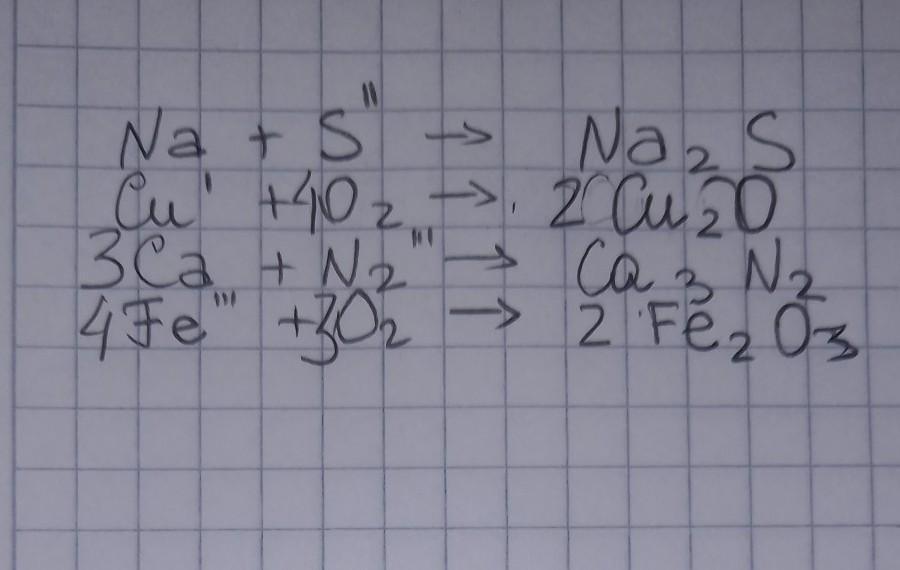 Na + S'' → Na₂S
Cu' + 4O₂ → 2Cu₂O
3Ca + N₂''' → Ca₃N₂
4Fe''' + 3O₂ → 2Fe₂O₃